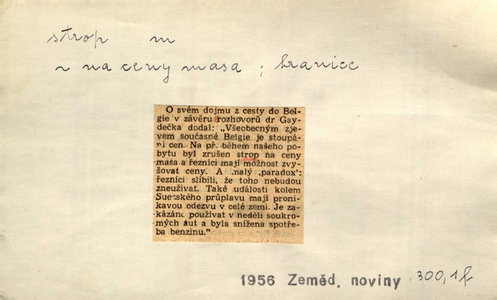 strop m
~ na ceny masa ; hranice
O svém dojmu z cesty do Bel-
gie v závěru rozhovorů dr Gay-
dečka dodal: „Všeobecným zje-
vem současné Belgie je stoupá-
ní cen. Na př. během našeho po-
bytu byl zrušen strop na ceny
masa a řezníci mají možnost zvy-
šovat ceny. A malý ‚paradox‘:
řezníci slíbili, že toho nebudou
zneužívat. Také události kolem
Suezského průplavu mají proni-
kavou odezvu v celé zemi. Je za-
kázáno používat v neděli soukro-
mých aut a byla snížena spotře-
ba benzinu."
1956 Zeměd. noviny 300,1f